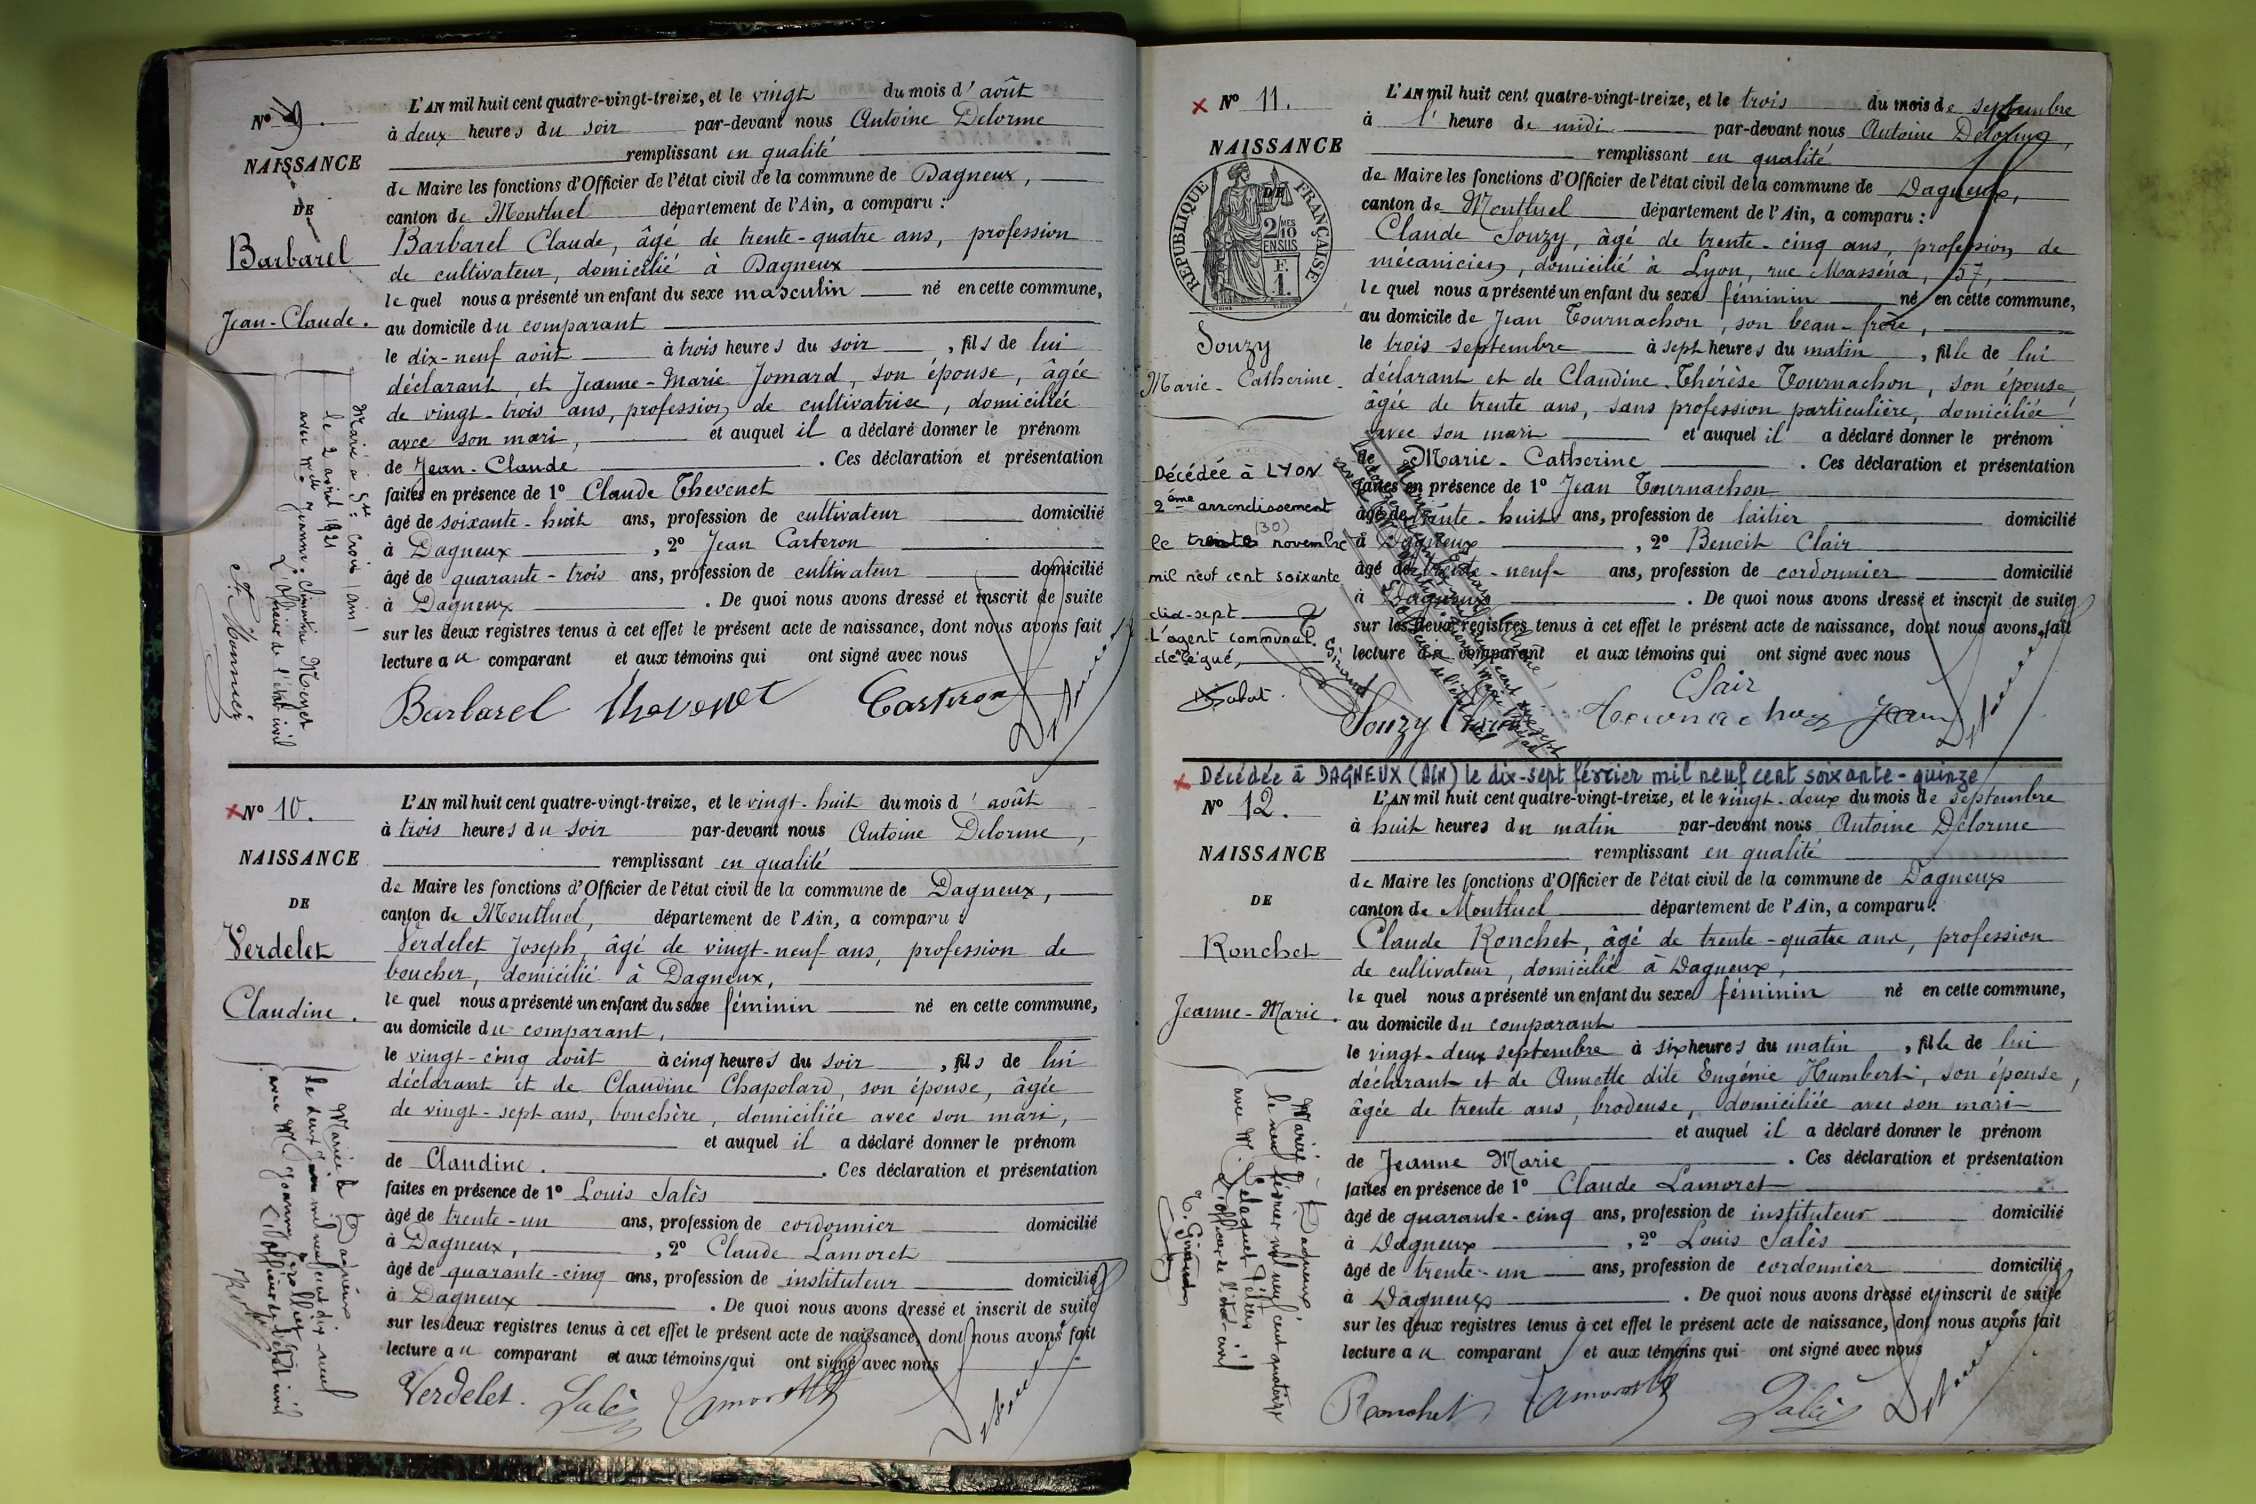 N° 9.
NAISSANCE
DE
Barbarel
Jean-Claude.
Marié à Ste Croix (Ain)
le 2 avril 1921
avec Mlle Jeanne Clémentine Meyet
L'officier de l'état civil
L'AN mil huit cent quatre-vingt-treize, et le vingt du mois d'août
à deux heures du soir par-devant nous Antoine Delorme
remplissant en qualité
de Maire les fonctions d'Officier de l'état civil de la commune de Dagneux,
canton de Montluel département de l'Ain, a comparu :
Barbarel Claude, âgé de trente-quatre ans, profession
de cultivateur, domicilié à Dagneux
lequel nous a présenté un enfant du sexe masculin né en cette commune,
au domicile du comparant
le dix-neuf août à trois heures du soir, fils de lui
déclarant, et Jeanne-Marie Jomard, son épouse, âgée
de vingt-trois ans, profession de cultivatrice, domiciliée
avec son mari, et auquel il a déclaré donner le prénom
de Jean-Claude. Ces déclaration et présentation
faites en présence de 1° Claude Thevenet
âgé de soixante-huit ans, profession de cultivateur domicilié
à Dagneux, 2° Jean Carteron
âgé de quarante-trois ans, profession de cultivateur domicilié
à Dagneux. De quoi nous avons dressé et inscrit de suite
sur les deux registres tenus à cet effet le présent acte de naissance, dont nous avons fait
lecture au comparant et aux témoins qui ont signé avec nous
Barbarel Thevenet Carteron Delorme
N° 10.
NAISSANCE
DE
Verdelet
Claudine.
Mariée à Dagneux
le deux juin mil neuf cent dix-neuf
L'officier de l'état civil
L'AN mil huit cent quatre-vingt-treize, et le vingt-huit du mois d'août
à trois heures du soir par-devant nous Antoine Delorme,
remplissant en qualité
de Maire les fonctions d'Officier de l'état civil de la commune de Dagneux,
canton de Montluel, département de l'Ain, a comparu :
Verdelet Joseph, âgé de vingt-neuf ans, profession de
boucher, domicilié à Dagneux,
lequel nous a présenté un enfant du sexe féminin né en cette commune,
au domicile du comparant,
le vingt-cinq août à cinq heures du soir, fils de lui
déclarant et de Claudine Chapolard, son épouse, âgée
de vingt-sept ans, bouchère, domiciliée avec son mari,
et auquel il a déclaré donner le prénom
de Claudine. Ces déclaration et présentation
faites en présence de 1° Louis Salès
âgé de trente-un ans, profession de cordonnier domicilié
à Dagneux, 2° Claude Lamoret
âgé de quarante-cinq ans, profession de instituteur domicilié
à Dagneux. De quoi nous avons dressé et inscrit de suite
sur les deux registres tenus à cet effet le présent acte de naissance, dont nous avons fait
lecture au comparant et aux témoins qui ont signé avec nous
Verdelet. Salès Lamoret Delorme
N° 11.
NAISSANCE
DE
RÉPUBLIQUE FRANÇAISE
2/10 EN SUS
Souzy
Marie-Catherine.
Décédée à LYON
2ème arrondissement
(30)
le trente novembre
mil neuf cent soixante
dix-sept
L'agent communal
délégué,
L'AN mil huit cent quatre-vingt-treize, et le trois du mois de septembre
à l'heure de midi par-devant nous Antoine Delorme,
remplissant en qualité
de Maire les fonctions d'Officier de l'état civil de la commune de Dagneux,
canton de Montluel département de l'Ain, a comparu :
Claude Souzy, âgé de trente-cinq ans, profession de
mécanicien, domicilié à Lyon, rue Masséna, 57,
lequel nous a présenté un enfant du sexe féminin né en cette commune,
au domicile de Jean Tournachon, son beau-frère,
le trois septembre à sept heures du matin, fille de lui
déclarant et de Claudine Thérèse Tournachon, son épouse,
âgée de trente ans, sans profession particulière, domiciliée
avec son mari et auquel il a déclaré donner le prénom
de Marie-Catherine. Ces déclaration et présentation
faites en présence de 1° Jean Tournachon
âgé de trente-huit ans, profession de laitier domicilié
à Dagneux, 2° Benoit Clair
âgé de trente-neuf ans, profession de cordonnier domicilié
à Dagneux. De quoi nous avons dressé et inscrit de suite
sur les deux registres tenus à cet effet le présent acte de naissance, dont nous avons fait
lecture au comparant et aux témoins qui ont signé avec nous
Clair
Souzy Claude Tournachon Jean Delorme
Décédée à DAGNEUX (AIN) le dix-sept février mil neuf cent soixante-quinze
N° 12.
NAISSANCE
DE
Ronchet
Jeanne-Marie.
Mariée à Dagneux
le neuf février mil neuf cent quatorze
L'officier de l'état-civil
L'AN mil huit cent quatre-vingt-treize, et le vingt-deux du mois de septembre
à huit heures du matin par-devant nous Antoine Delorme
remplissant en qualité
de Maire les fonctions d'Officier de l'état civil de la commune de Dagneux
canton de Montluel département de l'Ain, a comparu :
Claude Ronchet, âgé de trente-quatre ans, profession
de cultivateur, domicilié à Dagneux,
lequel nous a présenté un enfant du sexe féminin né en cette commune,
au domicile du comparant
le vingt-deux septembre à six heures du matin, fille de lui
déclarant et de Annette dite Eugénie Humbert, son épouse,
âgée de trente ans, brodeuse, domiciliée avec son mari
et auquel il a déclaré donner le prénom
de Jeanne Marie. Ces déclaration et présentation
faites en présence de 1° Claude Lamoret
âgé de quarante-cinq ans, profession de instituteur domicilié
à Dagneux, 2° Louis Salès
âgé de trente-un ans, profession de cordonnier domicilié
à Dagneux. De quoi nous avons dressé et inscrit de suite
sur les deux registres tenus à cet effet le présent acte de naissance, dont nous avons fait
lecture au comparant et aux témoins qui ont signé avec nous
Ronchet Lamoret Salès Delorme